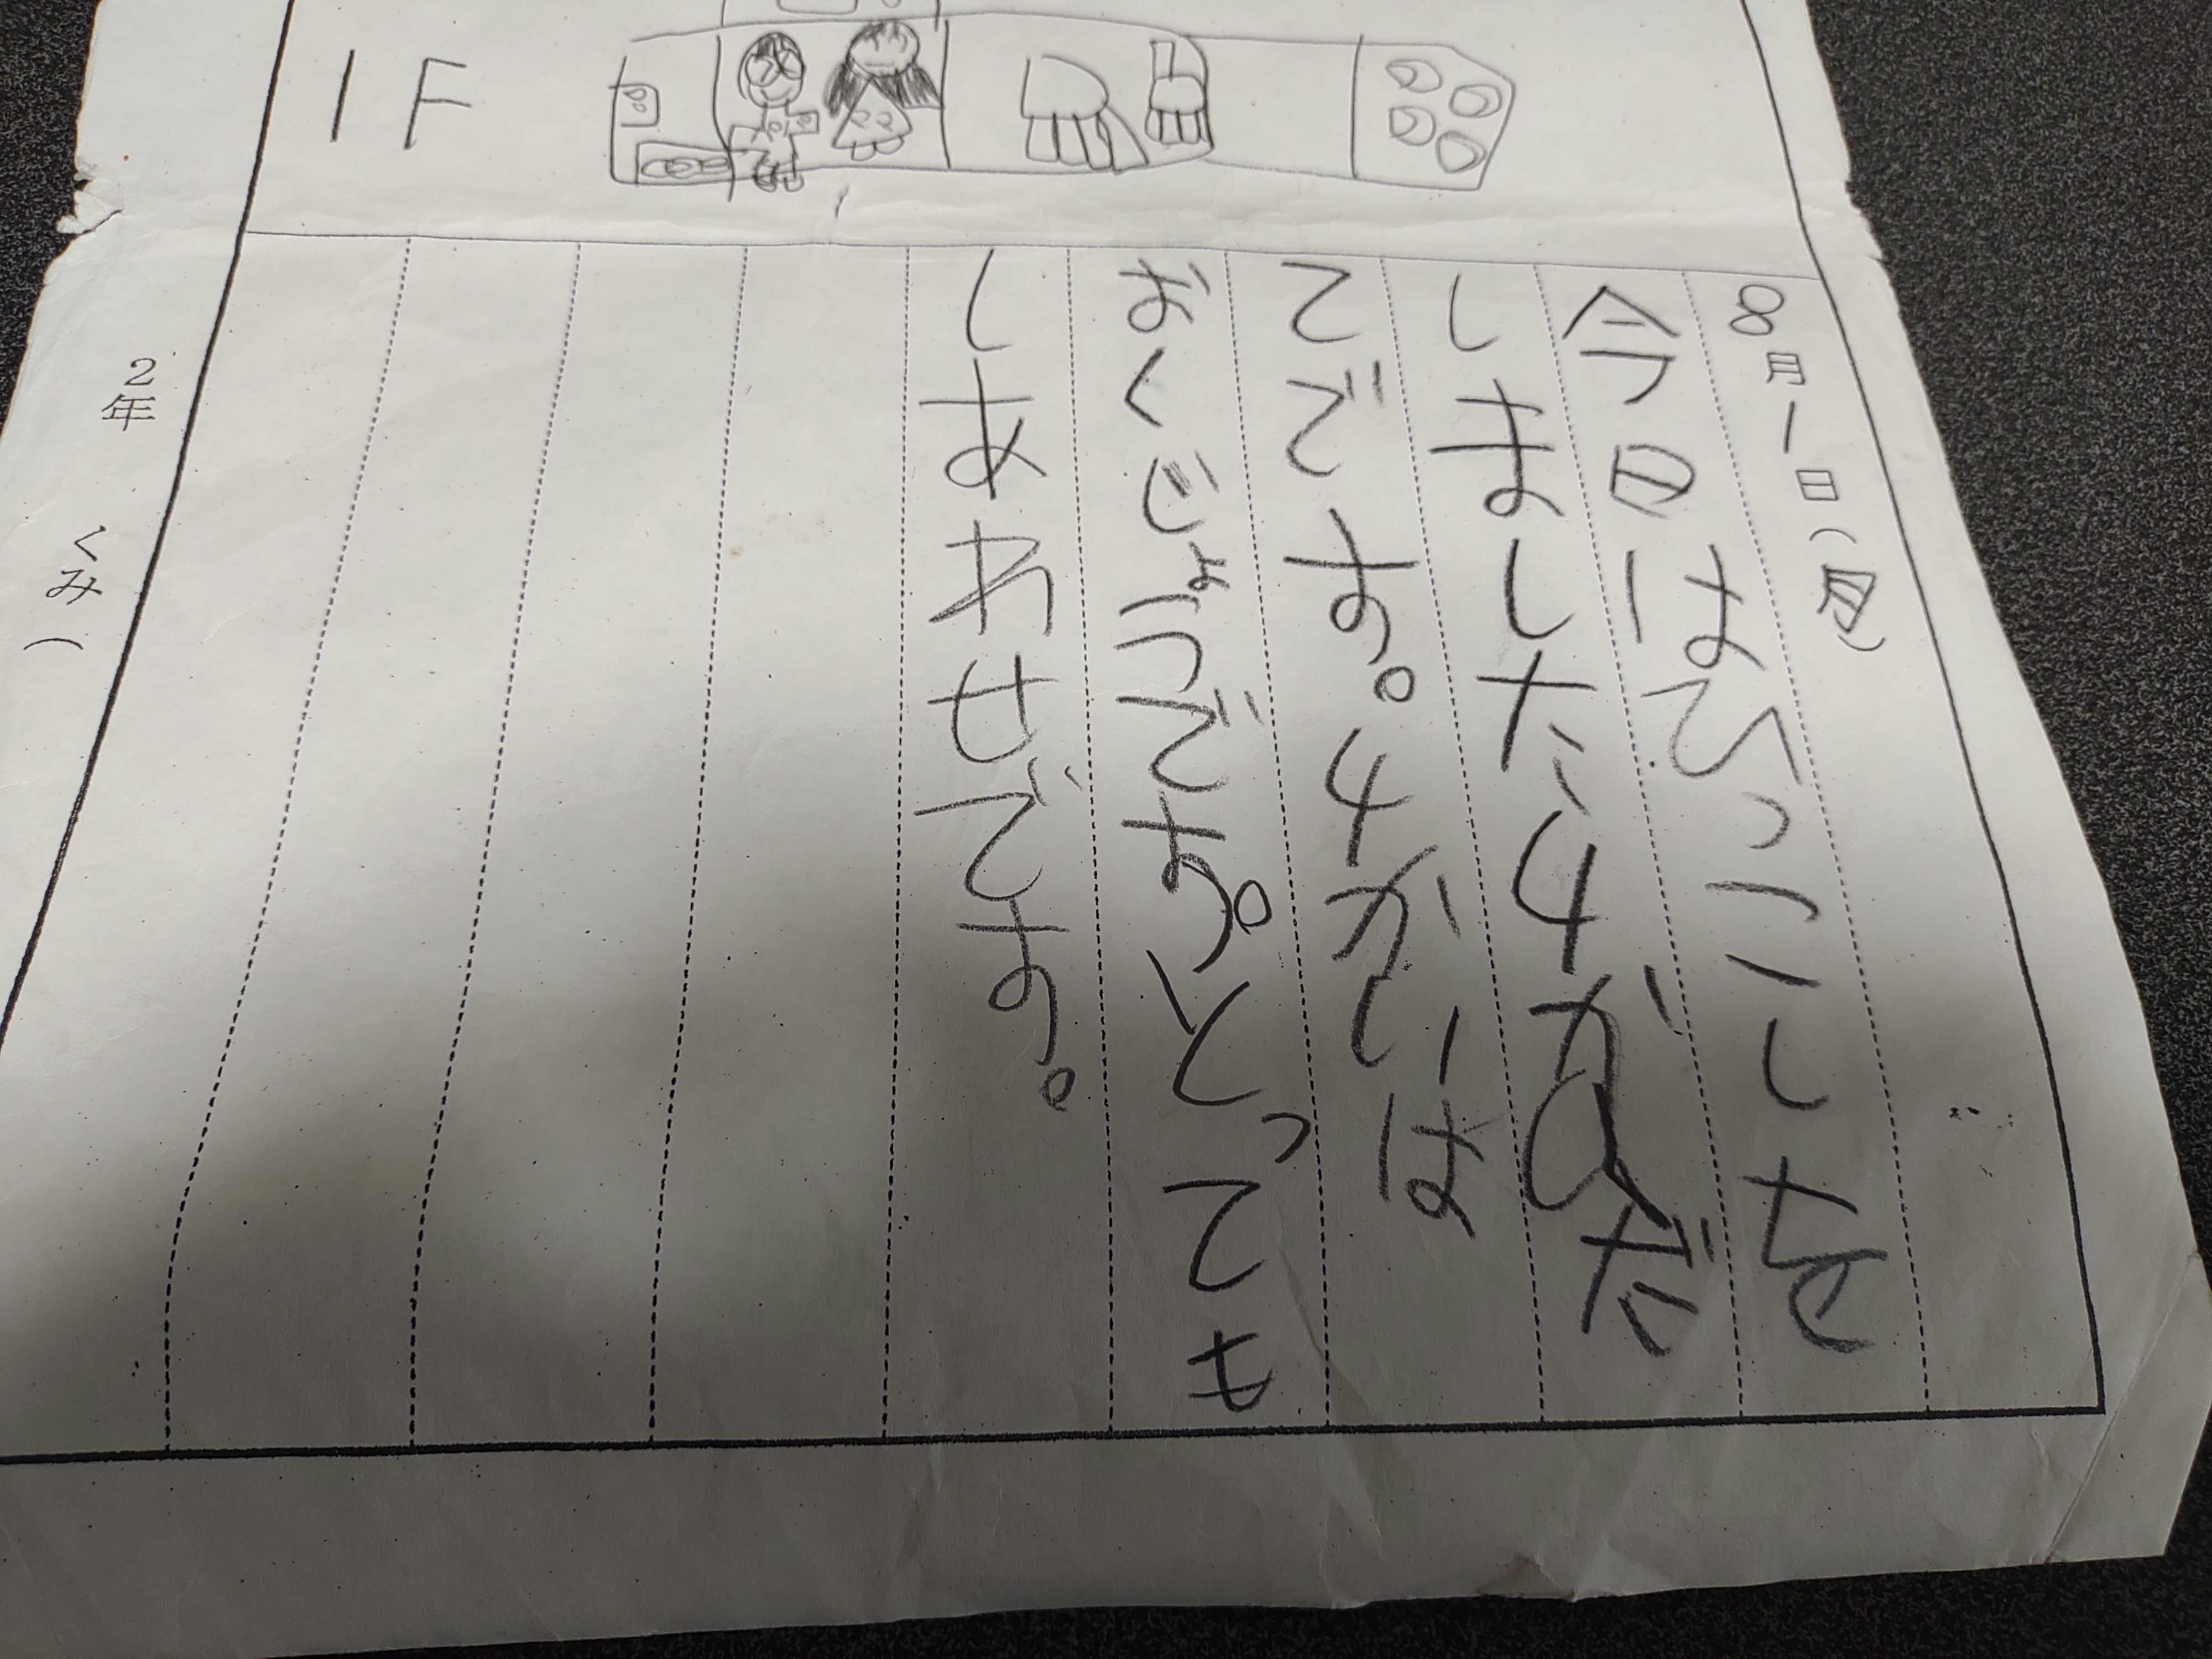 1F
8月1日(月)
今日はひっこしを
しました4がいだ
てです。4かいは
おくじょうです。とっても
しあわせです。
2年 くみ(